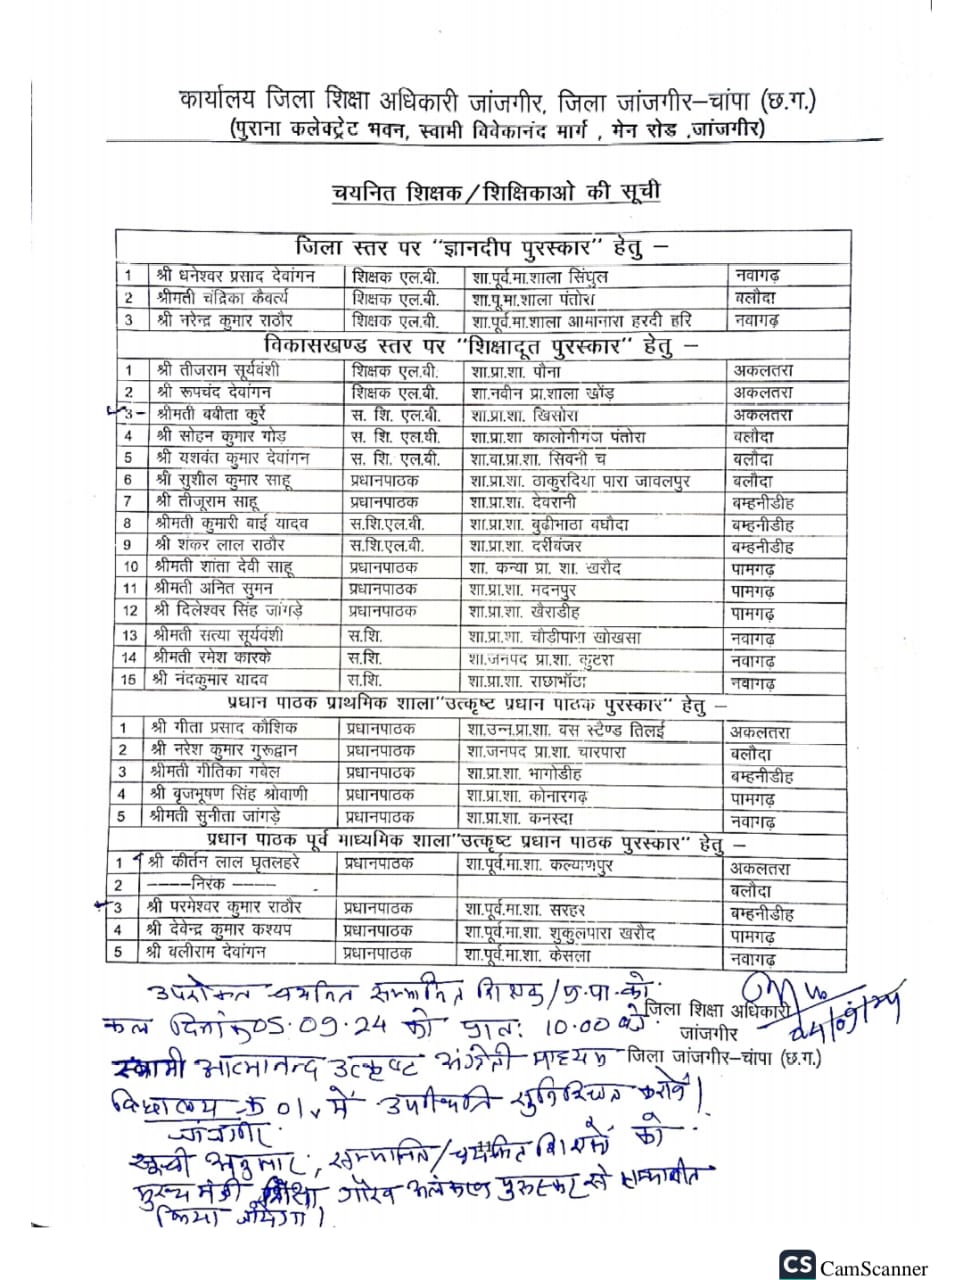 कार्यालय जिला शिक्षा अधिकारी जांजगीर, जिला जांजगीर–चांपा (छ.ग.)
(पुराना कलेक्ट्रेट भवन, स्वामी विवेकानंद मार्ग , मेन रोड ,जांजगीर)
चयनित शिक्षक/शिक्षिकाओ की सूची
जिला स्तर पर "ज्ञानदीप पुरस्कार" हेतु –
1 श्री धनेश्वर प्रसाद देवांगन शिक्षक एल.बी. शा.पूर्व.मा.शाला सिंघुल नवागढ़
2 श्रीमती चंद्रिका कैवर्त्य शिक्षक एल.बी. शा.पू.मा.शाला पंतोरा बलौदा
3 श्री नरेन्द्र कुमार राठौर शिक्षक एल.बी. शा.पूर्व.मा.शाला आमानारा हरदी हरि नवागढ़
विकासखण्ड स्तर पर "शिक्षादूत पुरस्कार" हेतु –
1 श्री तीजराम सूर्यवंशी शिक्षक एल.बी. शा.प्रा.शा. पौना अकलतरा
2 श्री रूपचंद देवांगन शिक्षक एल.बी. शा.नवीन प्रा.शाला खोंड़ अकलतरा
3 श्रीमती बबीता कुर्रे स. शि. एल.बी. शा.प्रा.शा. खिसोरा अकलतरा
4 श्री सोहन कुमार गोड़ स. शि. एल.बी. शा.प्रा.शा कालोनीगंज पंतोरा बलौदा
5 श्री यशवंत कुमार देवांगन स. शि. एल.बी. शा.बा.प्रा.शा. सिवनी च बलौदा
6 श्री सुशील कुमार साहू प्रधानपाठक शा.प्रा.शा. ठाकुरदिया पारा जावलपुर बलौदा
7 श्री तीजूराम साहू प्रधानपाठक शा.प्रा.शा. देवरानी बम्हनीडीह
8 श्रीमती कुमारी बाई यादव स.शि.एल.बी. शा.प्रा.शा. बुढीभाठा बघौदा बम्हनीडीह
9 श्री शंकर लाल राठौर स.शि.एल.बी. शा.प्रा.शा. दर्रीबंजर बम्हनीडीह
10 श्रीमती शांता देवी साहू प्रधानपाठक शा. कन्या प्रा. शा. खरौद पामगढ़
11 श्रीमती अनित सुमन प्रधानपाठक शा.प्रा.शा. मदनपुर पामगढ़
12 श्री दिलेश्वर सिंह जांगड़े प्रधानपाठक शा.प्रा.शा. खैराडीह पामगढ़
13 श्रीमती सत्या सूर्यवंशी स.शि. शा.प्रा.शा. चौडीपारा खोखसा नवागढ़
14 श्रीमती रमेश कारके स.शि. शा.जनपद प्रा.शा. कुटरा नवागढ़
15 श्री नंदकुमार यादव स.शि. शा.प्रा.शा. राछाभाँठा नवागढ़
प्रधान पाठक प्राथमिक शाला"उत्कृष्ट प्रधान पाठक पुरस्कार" हेतु –
1 श्री गीता प्रसाद कौशिक प्रधानपाठक शा.उन्न.प्रा.शा. बस स्टैण्ड तिलई अकलतरा
2 श्री नरेश कुमार गुरूद्वान प्रधानपाठक शा.जनपद प्रा.शा. चारपारा बलौदा
3 श्रीमती गीतिका गबेल प्रधानपाठक शा.प्रा.शा. भागोडीह बम्हनीडीह
4 श्री बृजभूषण सिंह श्रोवाणी प्रधानपाठक शा.प्रा.शा. कोनारगढ़ पामगढ़
5 श्रीमती सुनीता जांगड़े प्रधानपाठक शा.प्रा.शा. कनस्दा नवागढ़
प्रधान पाठक पूर्व माध्यमिक शाला"उत्कृष्ट प्रधान पाठक पुरस्कार" हेतु –
1 श्री कीर्तन लाल घृतलहरे प्रधानपाठक शा.पूर्व.मा.शा. कल्याणपुर अकलतरा
2 -----निरंक ----- बलौदा
3 श्री परमेश्वर कुमार राठौर प्रधानपाठक शा.पूर्व.मा.शा. सरहर बम्हनीडीह
4 श्री देवेन्द्र कुमार कश्यप प्रधानपाठक शा.पूर्व.मा.शा. शुकुलपारा खरौद पामगढ़
5 श्री बलीराम देवांगन प्रधानपाठक शा.पूर्व.मा.शा. केसला नवागढ़
उपरोक्त चयनित सम्मानित शिक्षक/प्र.पा.को
जिला शिक्षा अधिकारी
04/09/24
कल दिनांक 05.09.24 को प्रातः 10.00 बजे
जांजगीर
स्वामी आत्मानन्द उत्कृष्ट अंग्रेजी माध्यम
जिला जांजगीर–चांपा (छ.ग.)
विद्यालय क्र 01 में उपस्थिति सुनिश्चित करावें।
जांजगीर
सूची अनुसार, सम्मानित/चयनित शिक्षकों को
मुख्य मंत्री शिक्षा गौरव अलंकरण पुरुस्कार से सम्मानित
किया जायेगा।
CS CamScanner